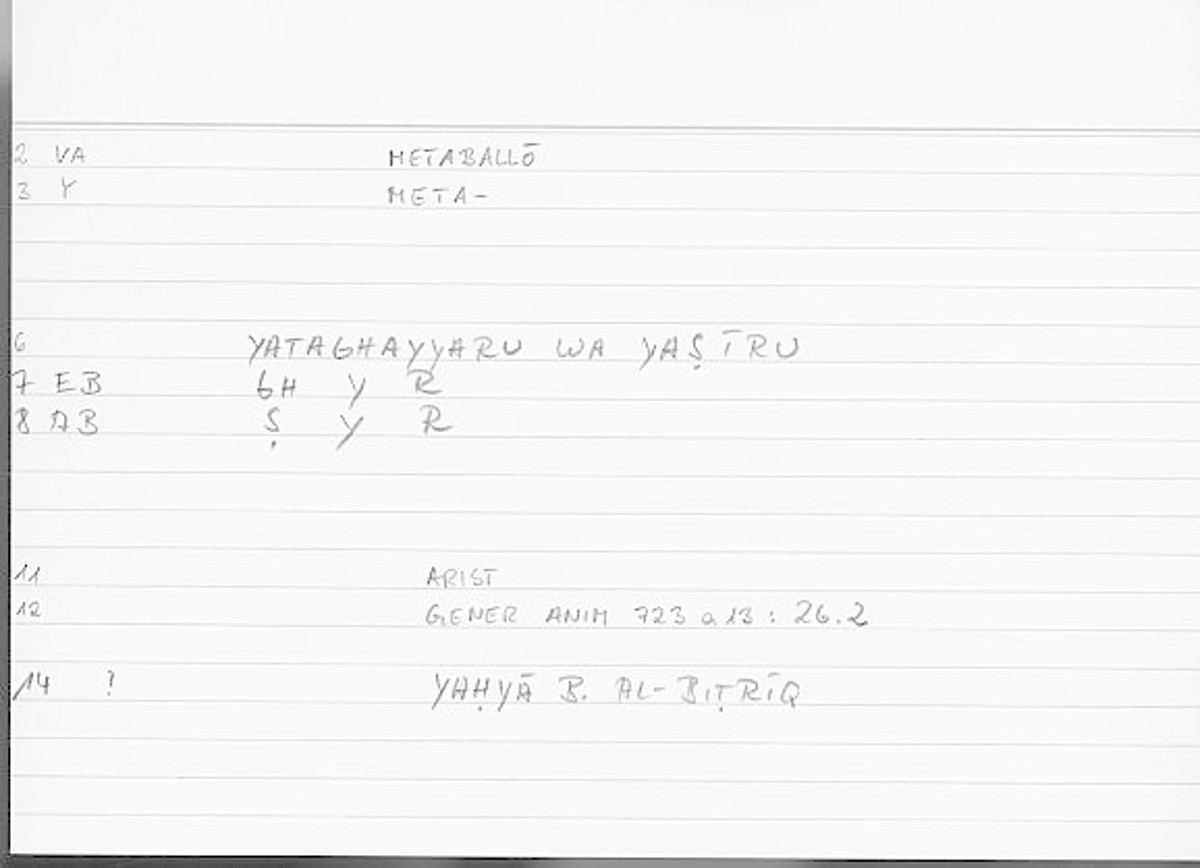 2 VA METABALLŌ
3 Y META-
6 YATAGHAYYARU WA YAṢĪRU
7 EB GH Y R
8 AB Ṣ Y R
11 ARIST
12 GENER ANIM 723 a 13 : 26.2
14 ? YAḤYĀ B. AL-BIṬRĪQ